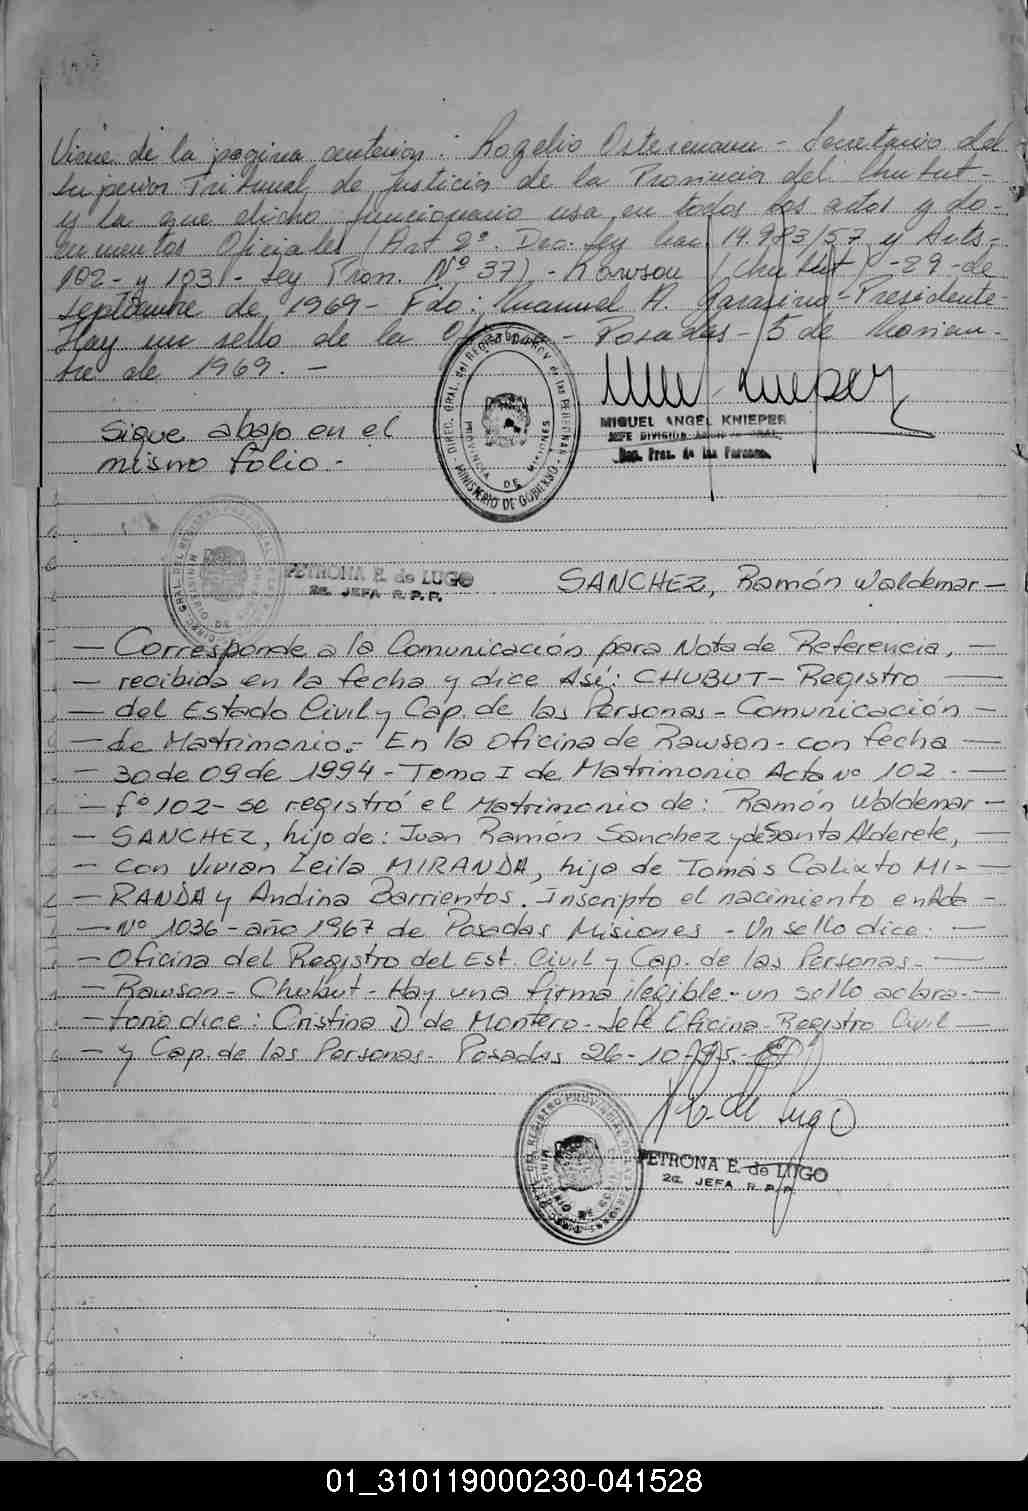 Viene de la pagina anterior: Rogelio Ostermann - Secretario del
Superior Tribunal de Justicia de la Provincia del Chubut -
y la que dicho funcionario usa en todos los actos y do-
cumentos Oficiales (Art 2º. Dec. Ley Nac. 14.983/57 y Arts-
102 - y 103 - Ley Prov. Nº 37) - Rawson (Chubut) - 29 - de
septiembre de 1969 - Fdo: Manuel A. Garasino - Presidente -
Hay un sello de la - Posadas - 5 de Noviem-
bre de 1969. -
Sigue abajo en el
mismo folio.-
DIREC. GRAL. del REGISTRO PROV de las PERSONAS
PROVINCIA DE MISIONES
MINISTERIO DE GOBIERNO
MIGUEL ANGEL KNIEPER
JEFE DIVISION
PETRONA E. de LUGO
2a. JEFA R.P.P.
SANCHEZ, Ramón Waldemar -
- Corresponde a la Comunicación para Nota de Referencia, -
- recibida en la fecha y dice Así: CHUBUT - Registro -
- del Estado Civil y Cap. de las Personas - Comunicación -
- de Matrimonio.- En la Oficina de Rawson - con fecha -
- 30 de 09 de 1994 - Tomo I de Matrimonio Acta nº 102. -
- fº 102 - se registró el Matrimonio de: Ramón Waldemar -
- SANCHEZ, hijo de: Juan Ramon Sanchez y de Santa Alderete, -
- con Vivian Leila MIRANDA, hija de Tomás Calixto MI- -
- RANDA y Andina Barrientos. Inscripto el nacimiento en Acta -
- Nº 1036 - año 1967 de Posadas Misiones - Un sello dice: -
- Oficina del Registro del Est. Civil y Cap. de las Personas. -
- Rawson - Chubut - Hay una firma ilegible - un sello aclara- -
- torio dice: Cristina D. de Montero - Jefe Oficina - Registro Civil -
- y Cap. de las Personas - Posadas 26-10-95.-
PETRONA E. de LUGO
2a. JEFA R.P.P.
01_310119000230-041528